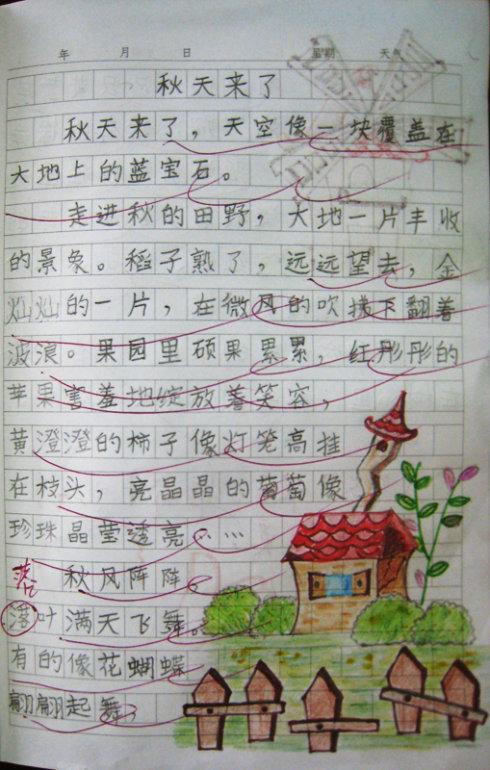 年 月 日 星期 天气
秋天来了
秋天来了，天空像一块覆盖在
大地上的蓝宝石。
走进秋的田野，大地一片丰收
的景象。稻子熟了，远远望去，金
灿灿的一片，在微风的吹拂下翻着
波浪。果园里硕果累累，红彤彤的
苹果害羞地绽放着笑容，
黄澄澄的柿子像灯笼高挂
在枝头，亮晶晶的葡萄像
珍珠晶莹透亮……
秋风阵阵。
落叶满天飞舞。
有的像花蝴蝶
翩翩起舞，